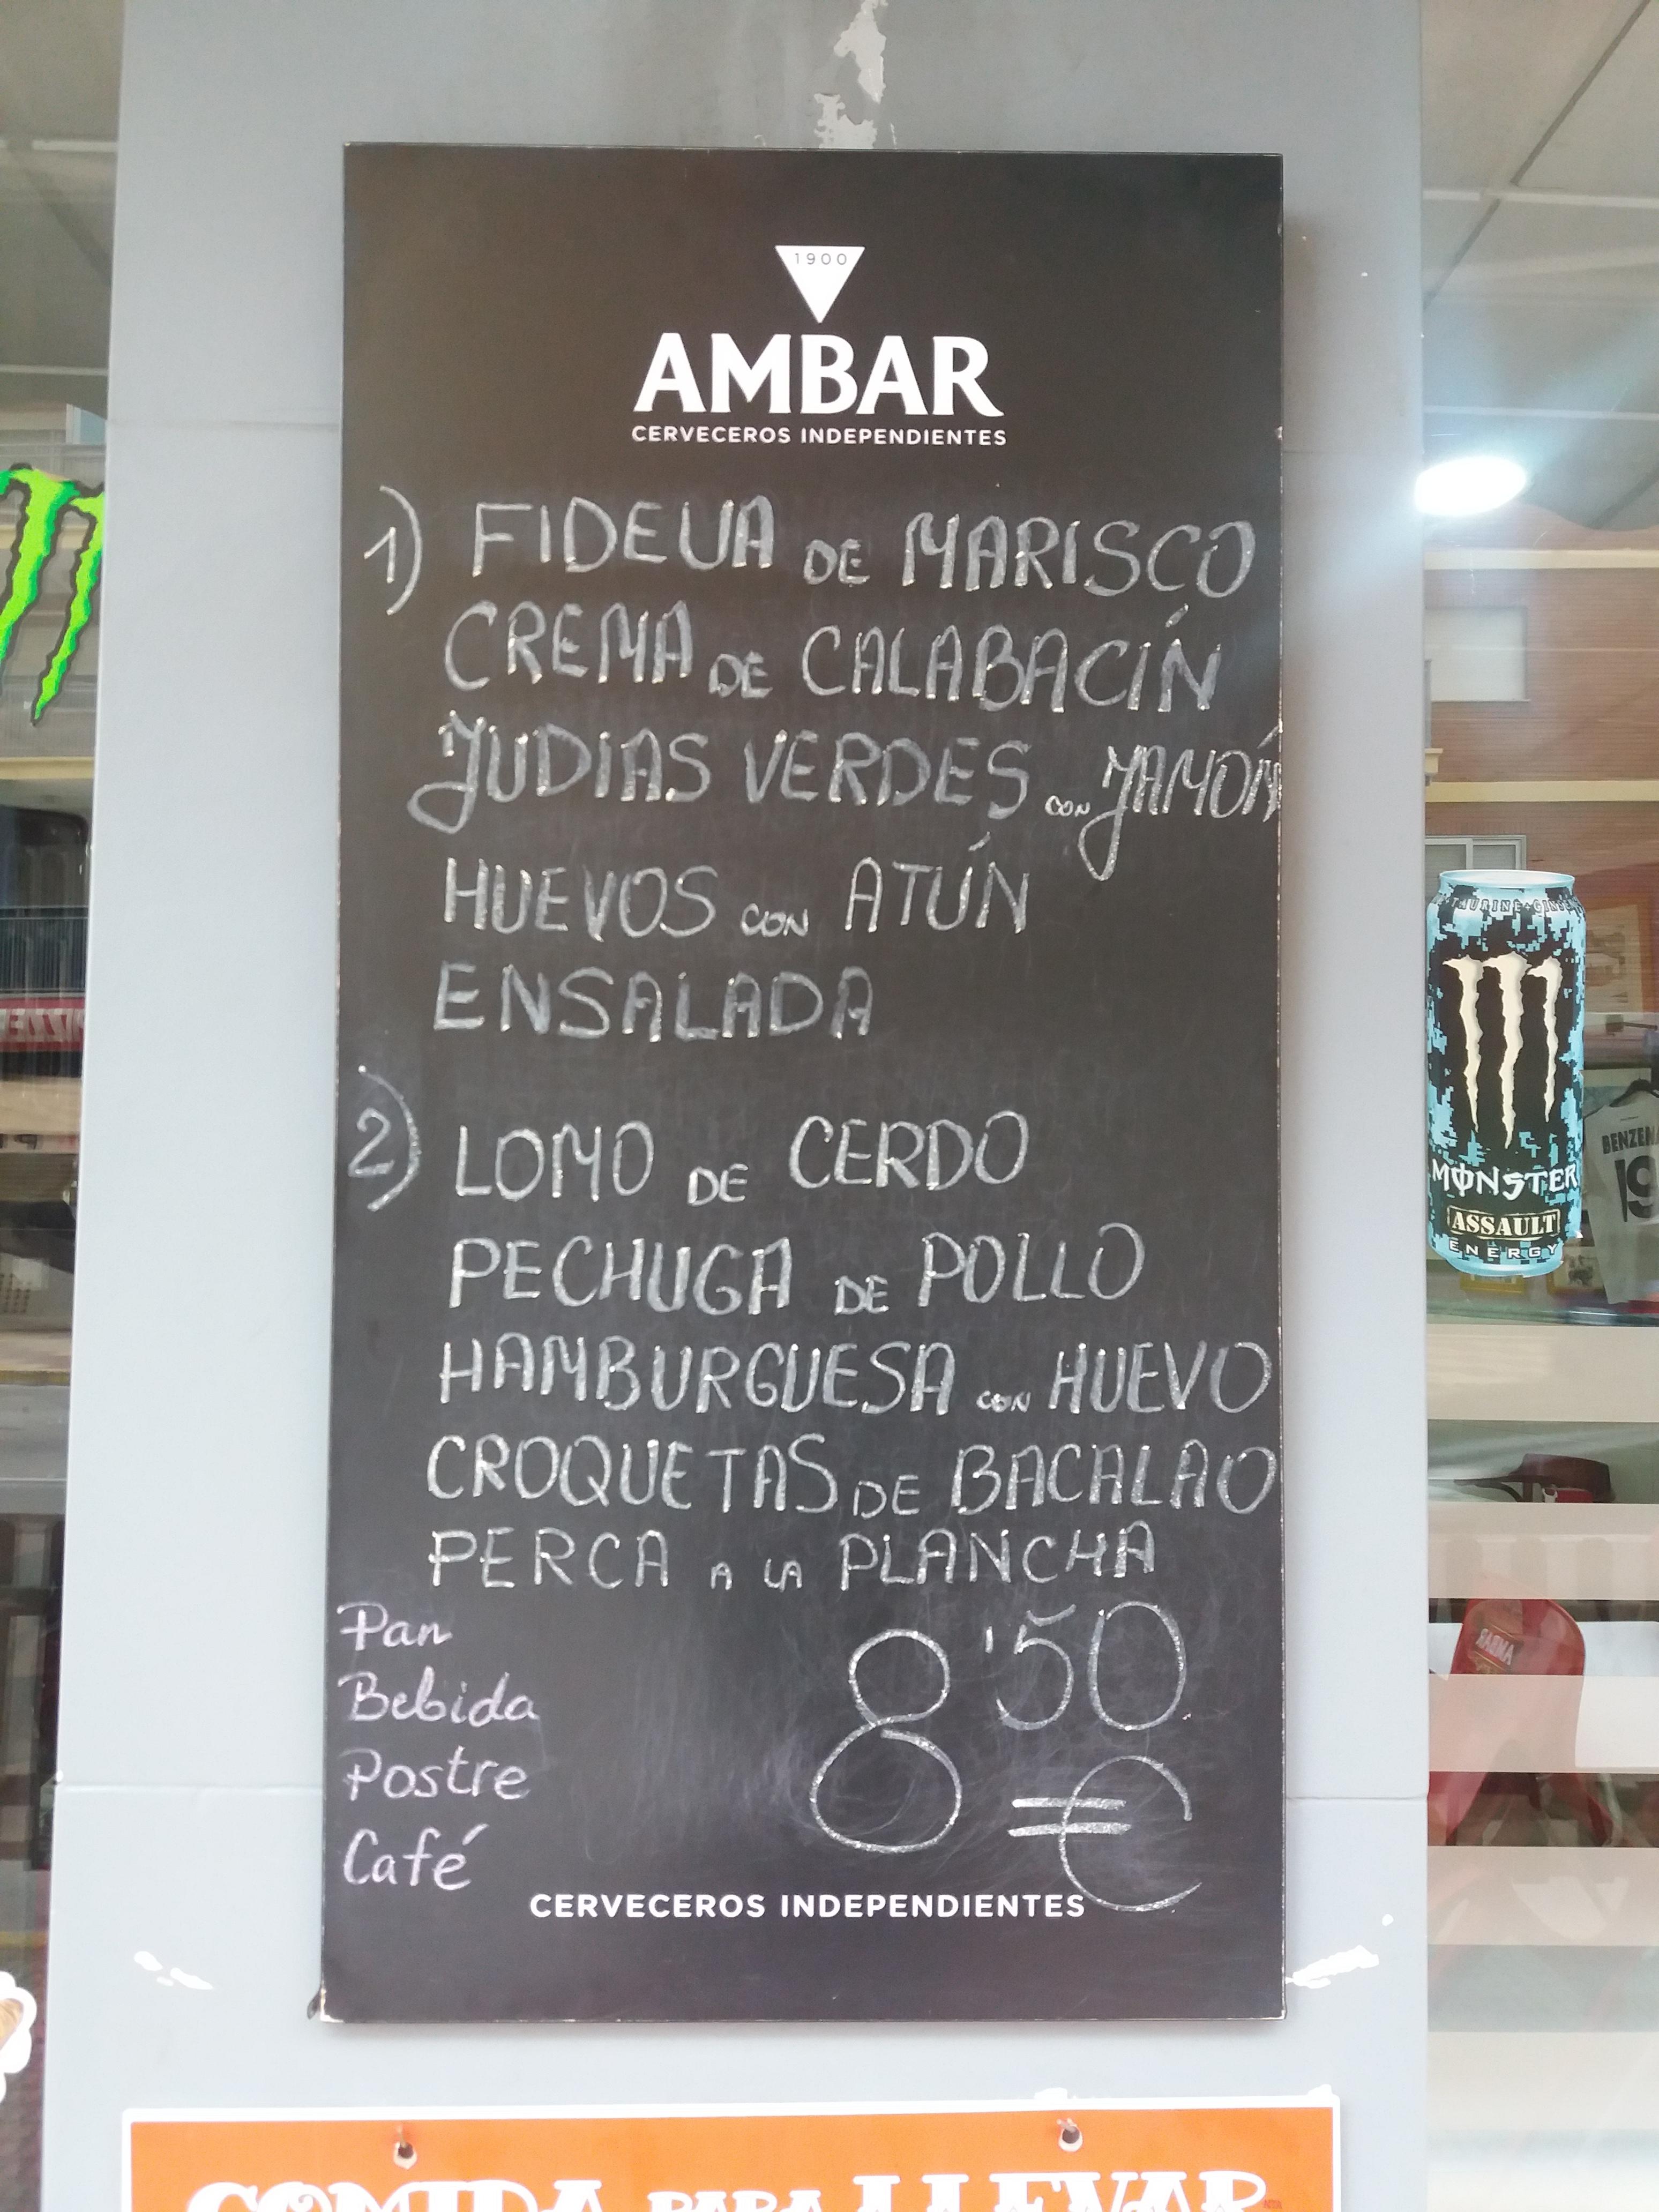 1900
AMBAR
CERVECEROS INDEPENDIENTES
1) FIDEUA DE MARISCO
CREMA DE CALABACÍN
JUDIAS VERDES CON JAMÓN
HUEVOS CON ATÚN
ENSALADA
2) LOMO DE CERDO
PECHUGA DE POLLO
HAMBURGUESA CON HUEVO
CROQUETAS DE BACALAO
PERCA A LA PLANCHA
Pan
Bebida
Postre
Café
8'50
€
CERVECEROS INDEPENDIENTES
COMIDA PARA LLEVAR
MONSTER
ASSAULT
ENERGY
19
AMBAR